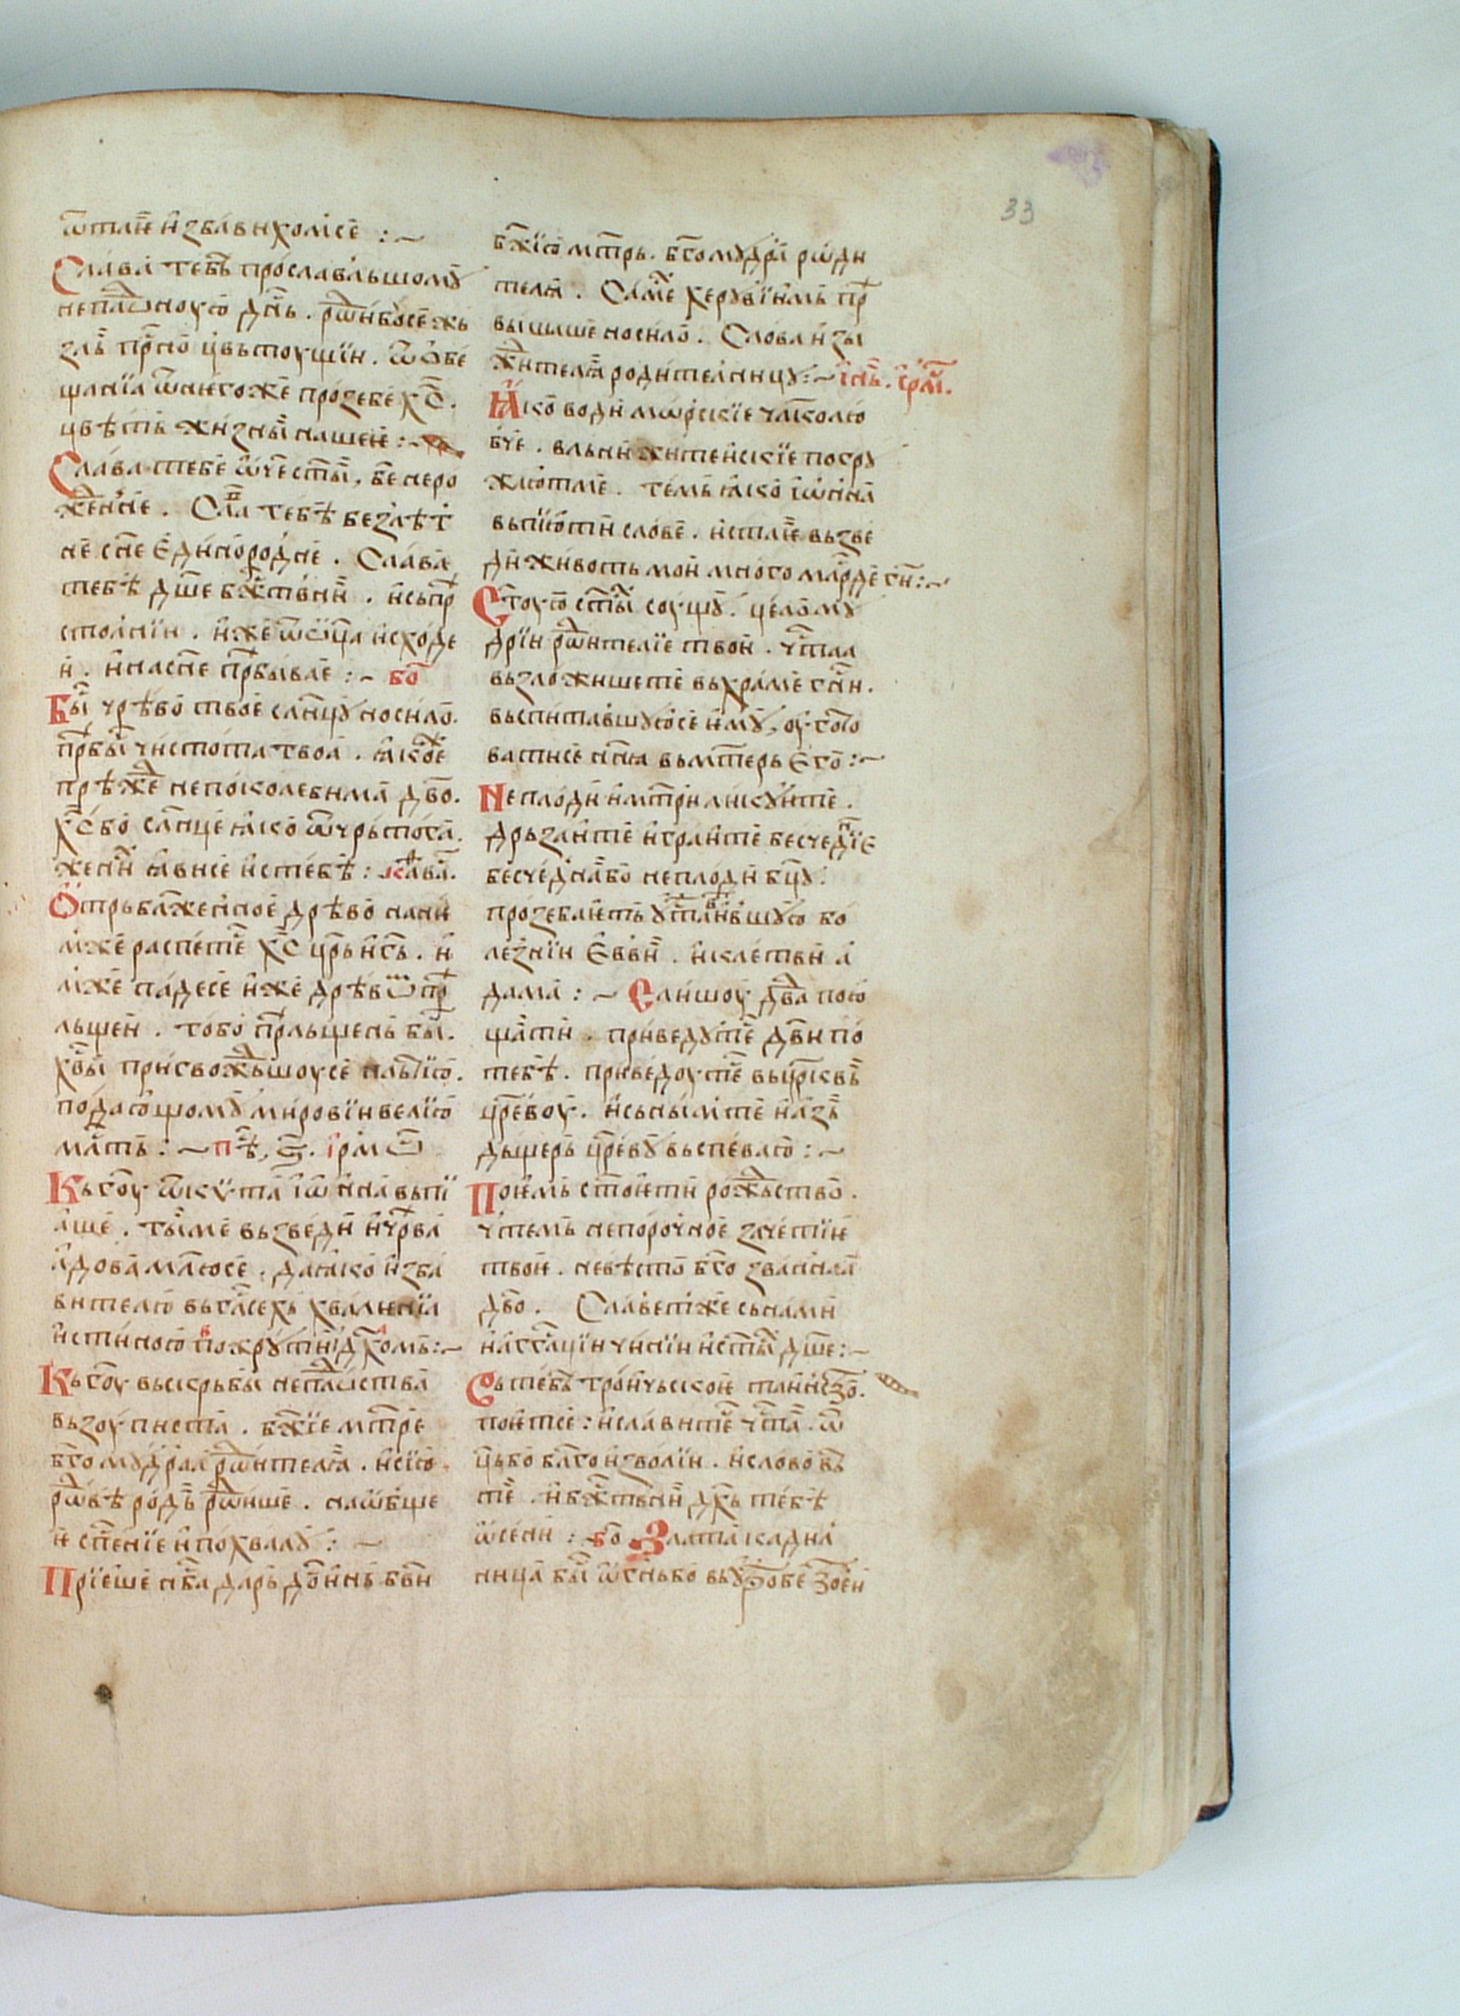 33
ѿтлѥ҆ и҆збавихомсе :~
Слава тебѣ прославльшомꙋ
неплⷣноую дн҃ь . рⷣѡи босе жь
зль прⷭно цвьтоущіи . ѿѡбе
щаніа ѿнюгоже прозебе х҃с .
цвѣть жизны нашеѥ :~
Слава тебе ѡ҆ч҃е ст҃ы , бе неро
жⷣенне . Слⷡа тебѣ безлѣт
не сн҃е єдинородне . Слава
тебѣ дш҃е бжⷭтвни . и сьпрⷭ
столніи . иже ѿѡц҃а исходе
и . и на сн҃е прⷭбывае :~ бо
Бы чрѣво твое слн҃цꙋ носило .
прⷭбы чистота твоа . ꙗкоже
прѣжⷣе непоколебима дв҃о .
Х҃с бо слн҃це ꙗко ѿчрьтога .
жених ꙗвисе ис тебѣ : слава .
Отрьблаженное дрѣво на ни
мже распетсе х҃с црь и҃сь . и
мже падесе иже дрѣвѡⷨ прⷭ
льщеи . тобо прⷭльщень бы .
х҃вы пригвождьшоусе пльтію .
подающомꙋ мирови и велію
млⷭть :~ пѣ , ѕ҃ . ірмⷪ
Кь б҃оу ѿ кѵта іѡна вьпі
аше . ты ме вьзведи и чрⷭва
адова млюсе . да ꙗко изба
вителю вь гласехь хваленіа
истинною пожрꙋти дх҃омь :~
Кь б҃оу вьскрьбы неплⷣства
вьзоуписта . бж҃іе мтр҃е
бг҃омꙋдраа рⷣѡителꙗ . и сію
рⷣѡвѣ родь рⷣѡише . наѡбще
ѥ сп҃сеніе и похвалꙋ :~
Пріеше нб҃са дарь дⷭоинь бв҃и
бж҃ію мтр҃ь . бг҃омꙋдра рѡди
телꙗ . Самⷯе херꙋвимь прⷭ
вышше носило . Слова и зи
жⷣителꙗ родителницꙋ :~ інь . ірмⷪ .
Ꙗко води морскіе чл҃колю
бче . вльни житеискіе погрꙋ
жают ме . темь ꙗко іѡна
вьпію ти слове . ис тлѥ҆ вьзве
ди животь мои многомлⷭрде ги҃ :~
С҃тоую ст҃ых соущꙋ . целомꙋ
дріи рⷣѡителіе твои . чⷭтаа
вьзложише те вь храме гн҃и .
вьспитавшꙋюсе имꙋ , оугото
ватисе нн҃ꙗ вь мтр҃ерь его :~
Неплоди и мтр҃и ликꙋите .
дрьзаите и граите бесчедніе
бесчеднаа бо неплоди бц҃ꙋ .
прозебаеть ꙋставившꙋю бо
лезніи ѥвви . и клетви а
дама :~ Слишоу дв҃а пою
щаⷭ ти . приведꙋте дв҃и по
тебѣ . приведоуте вь црⷭквь
црⷭевоу . и сьнымте и азь
дьщерь црⷭевꙋ вьспеваю :~
Поимь ст҃ое ти рожⷣьство .
чтемь непорочное зачетіе
твое . невѣсто бг҃озваннаа
дв҃о . Славет же сь нами
нбⷭции чиніи и ст҃ых дш҃е :~
О тебѣ троичьскои таине .
поитсе : и славитсе чⷭтаа . ѿ
ць бо благоизволи . и слово вь
те . и бжⷭтвни дх҃ь тебѣ
ѡсени : бо Златаа кадил
ница бы ѡгнь бо вь ꙋтробе